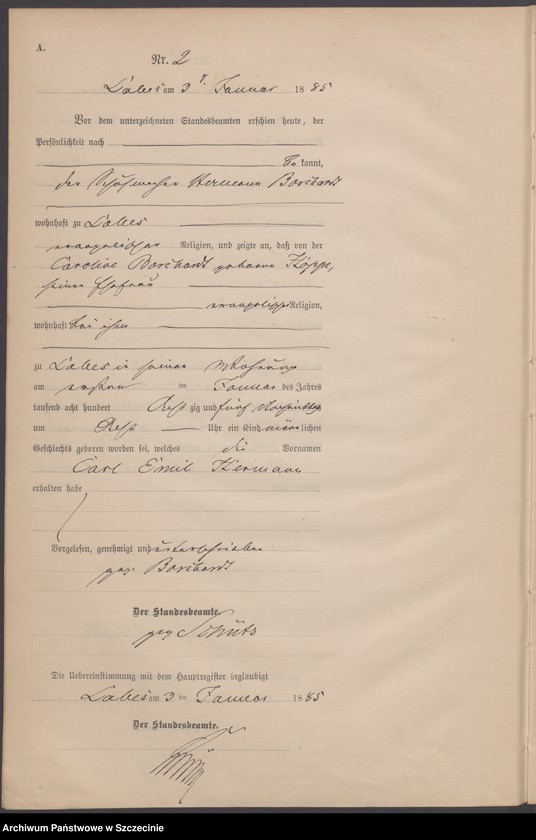 A.
Nr. 2
Labes am 3ten Januar 1885
Vor dem unterzeichneten Standesbeamten erschien heute, der
Persönlichkeit nach
bekannt,
der Schuhmacher Hermann Borchardt
wohnhaft zu Labes
evangelischer Religion, und zeigte an, daß von der
Caroline Borchardt geborenen Köppe,
seiner Ehefrau
evangelischer Religion,
wohnhaft bei ihm
zu Labes in seiner Wohnung
am ersten im Januar des Jahres
tausend acht hundert Acht zig und fünf Nachmittags
um Acht Uhr ein Kind männlichen
Geschlechts geboren worden sei, welches die Vornamen
Carl Emil Hermann
erhalten habe
Vorgelesen, genehmigt und unterschrieben
gez. Borchardt
Der Standesbeamte.
gez. Schütz
Die Uebereinstimmung mit dem Hauptregister beglaubigt
Labes am 3ten Januar 1885
Der Standesbeamte.
Archiwum Państwowe w Szczecinie